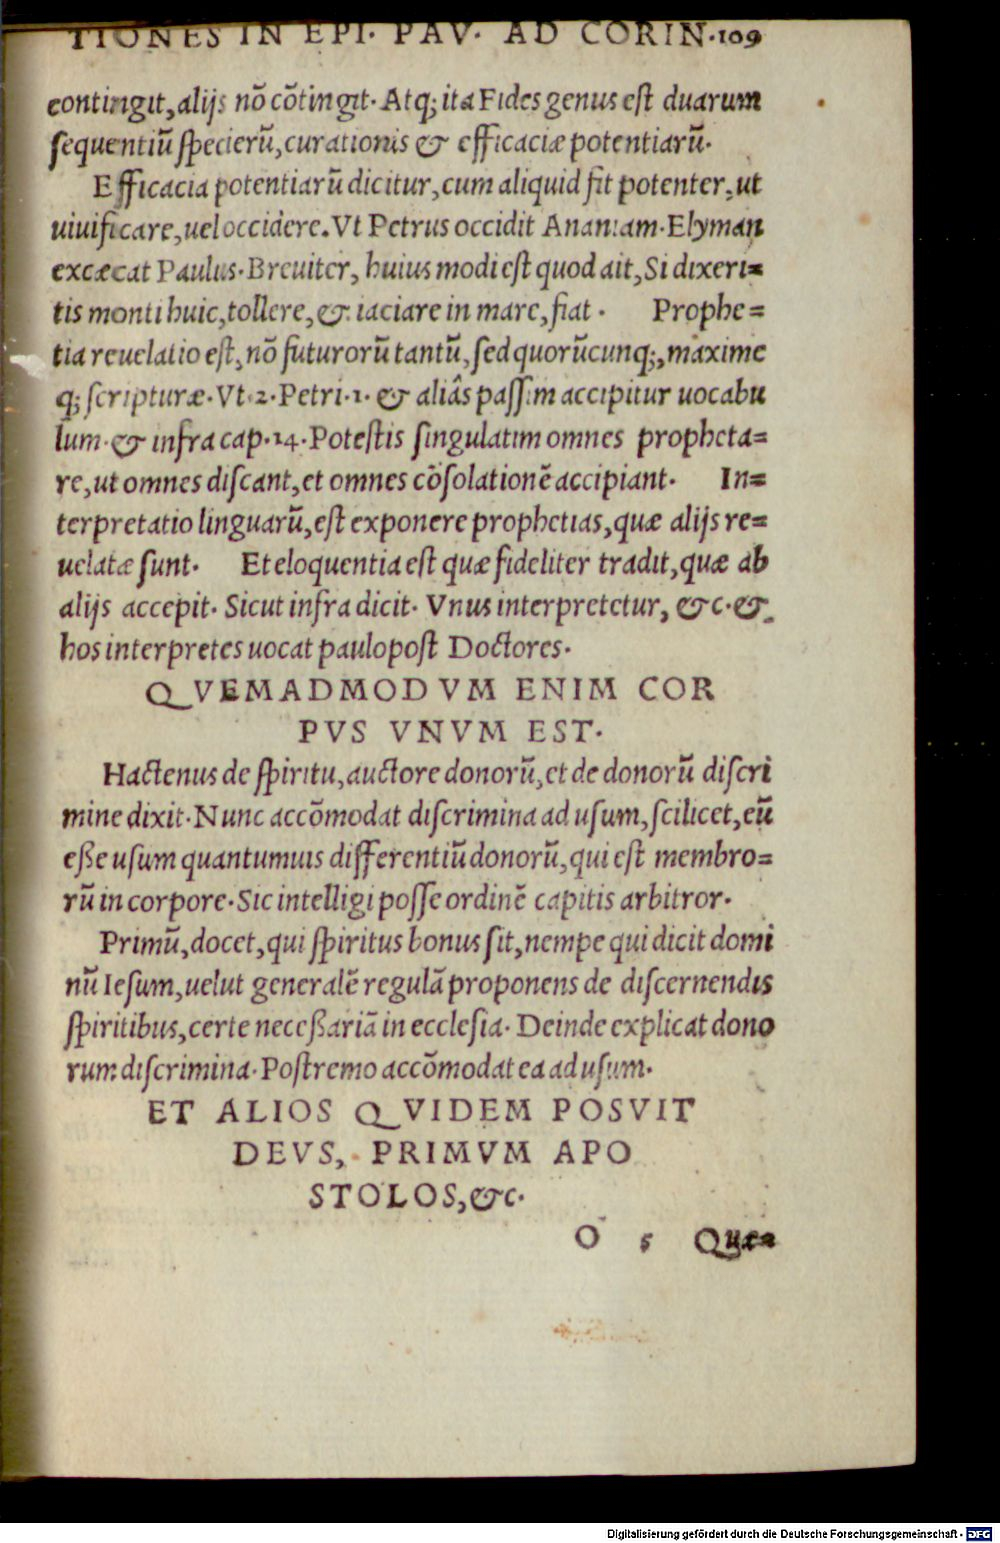 TIONES IN EPI. PAV. AD CORIN. 109
contingit, alijs nō cōtingit. Atq; ita Fides genus est duarum
sequentiū specierū, curationis & efficaciæ potentiarū.
Efficacia potentiarū dicitur, cum aliquid fit potenter, ut
uiuificare, uel occidere. Vt Petrus occidit Ananiam. Elyman
excæcat Paulus. Breuiter, huius modi est quod ait, Si dixeri=
tis monti huic, tollere, & iaciare in mare, fiat. Prophe=
tia reuelatio est, nō futurorū tantū, sed quorūcunq;, maxime
q; scripturæ. Vt 2. Petri. 1. & aliâs passim accipitur uocabu
lum. & infra cap. 14. Potestis singulatim omnes propheta=
re, ut omnes discant, et omnes cōsolationē accipiant. In=
terpretatio linguarū, est exponere prophetias, quæ alijs re=
uelatæ sunt. Et eloquentia est quæ fideliter tradit, quæ ab
alijs accepit. Sicut infra dicit. Vnus interpretetur, &c. &
hos interpretes uocat paulopost Doctores.
QVEMADMODVM ENIM COR
PVS VNVM EST.
Hactenus de spiritu, auctore donorū, et de donorū discri
mine dixit. Nunc accōmodat discrimina ad usum, scilicet, eū
eße usum quantumuis differentiū donorū, qui est membro=
rū in corpore. Sic intelligi posse ordinē capitis arbitror.
Primū, docet, qui spiritus bonus sit, nempe qui dicit domi
nū Iesum, uelut generalē regulā proponens de discernendis
spiritibus, certe neceßariā in ecclesia. Deinde explicat dono
rum discrimina. Postremo accōmodat ea ad usum.
ET ALIOS QVIDEM POSVIT
DEVS, PRIMVM APO
STOLOS, &c.
O 5 Quæ=
Digitalisierung gefördert durch die Deutsche Forschungsgemeinschaft - DFG